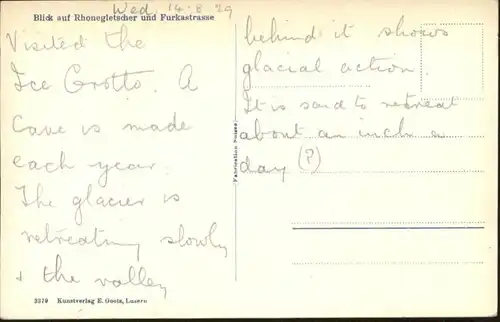 Wed. 14·8·29
Blick auf Rhonegletscher und Furkastrasse
Visited the
Ice Grotto. A
cave is made
each year.
The glacier is
retreating slowly
+ the valley
behind it shows
glacial action.
It is said to retreat
about an inch a
day (?)
Fabrication Suisse
3379 Kunstverlag E. Goetz, Luzern